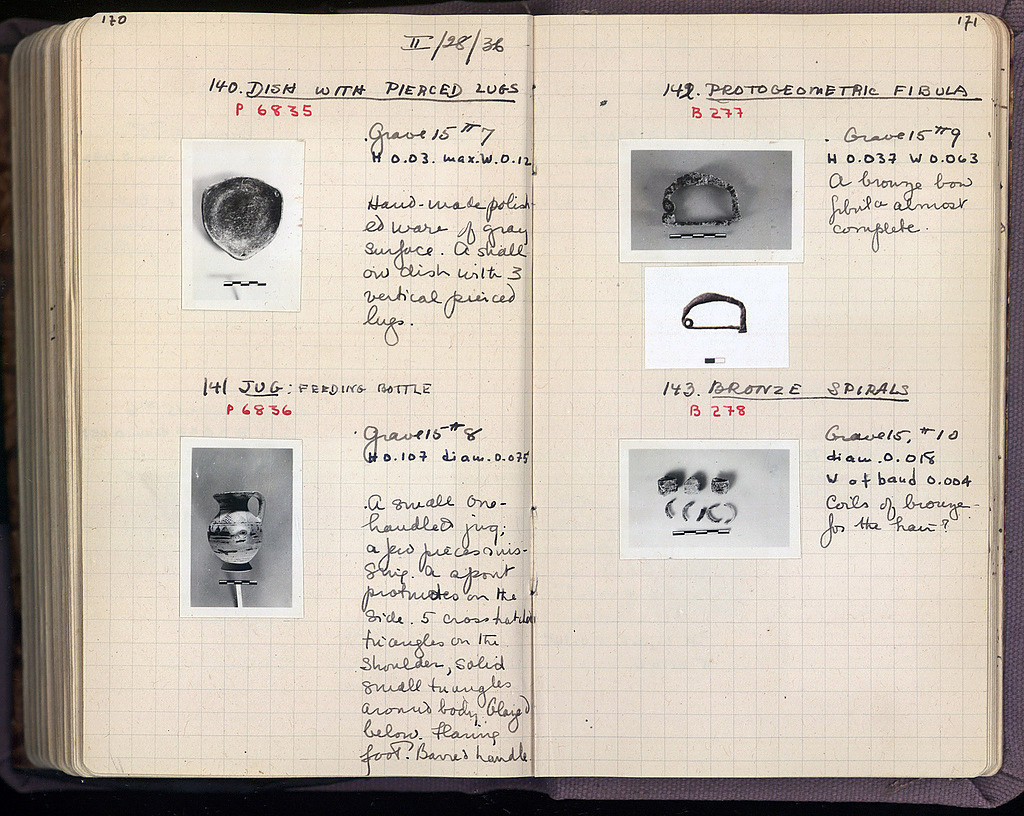 170
II/28/36
140. DISH WITH PIERCED LUGS
P 6835
Grave 15 #7
H 0.03. max. W. 0.12
Hand-made polish-
ed ware of gray
surface. A small
dish with 3
vertical pierced
lugs.
141 JUG: FEEDING BOTTLE
P 6836
Grave 15 #8
H 0.107 diam. 0.075
A small one-
handled jug;
a few pieces mis-
sing. A spout
protrudes on the
side. 5 crosshatched
triangles on the
shoulder, solid
small triangles
around body. Glazed
below. Flaring
foot. Barred handle.
171
142. PROTOGEOMETRIC FIBULA
B 277
Grave 15 #9
H 0.037 W 0.063
A bronze bow
fibula almost
complete.
143. BRONZE SPIRALS
B 278
Grave 15, #10
diam. 0.018
W of band 0.004
Coils of bronze-
for the hair?